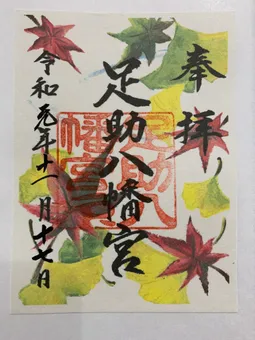 奉拝
足助八幡宮
令和元年十一月十七日
足助八幡宮